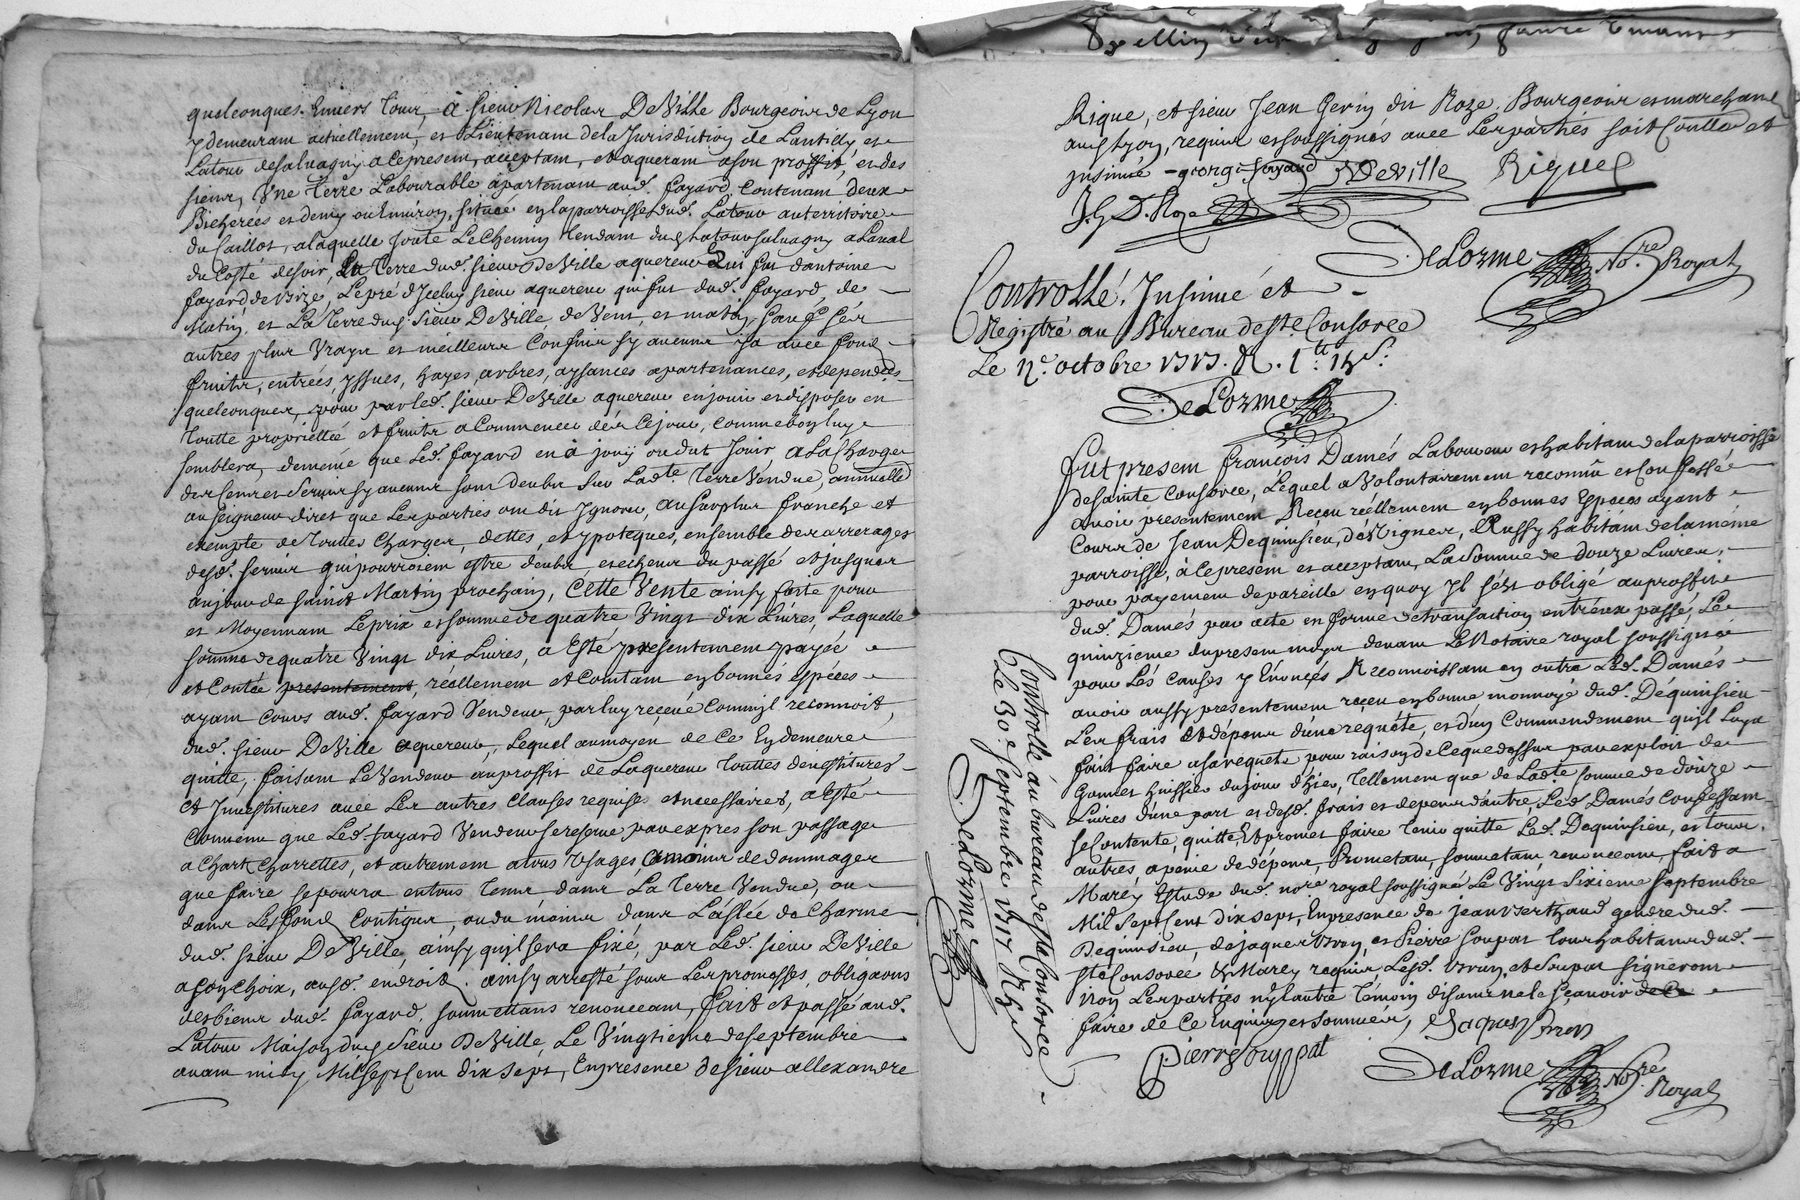 quelconques Envers tous, à sieur Nicolas De Ville Bourgeois de Lyon
y demeurant actuellement, et Lieutenant de la Jurisdiction de Lantilly et
Latour desalvagny a ce present, acceptant, et aquerant a son proffit, et des
siens, Une Terre Labourable apartenant aud. fayard, Contenant deux
Bicherées et demy ou Environ, située en la parroisse dud. Latour au territoire
du Caillot, a laquelle Joute Le Chemin Tendant dud Latour salvagny a Laval
du Costé de soir, La Terre dud. sieur De Ville aquereur Qui fut d'antoine
fayard de Bize, Le pré d'Iceluy sieur aquereur qui fut dud. fayard, de
Matin, et La Terre dud. Sieur De Ville de Vent, et matin, sauf ses
autres plus Vrays et meilleurs Confins sy aucuns y a avec fond
fruits, entrées, yssues, hayes, arbres, aysances apartenances, et dependces
quelconques, pour par led. sieur De Ville aquereur en jouir et disposer en
Toutte proprietté et fruits a Commencer dés Ce jour, comme bon luy
semblera, de meme que Led. fayard en à jouy ou dut Jouir, a La Charge
des Cens et Servis sy aucuns sont deubs sur Ladte. Terre Vendue, annuelle
au seigneur direct que Les parties ont dit Ignorer, au surplus franche et
exempte de Toutes Charges, dettes, et ypoteques, ensemble des arrerages
desd. servis qui pourroient estre deubs, et echeus du passé et jusques
au jour de saint Martin prochain, Cette Vente ainsy faite pour
et Moyennant Le prix et somme de quatre Vingt dix Livres, Laquelle
somme de quatre Vingt dix Livres, a Esté presentement payée
et Contée presentement, réellement et Comtant en bonnes espéces
ayant cours aud. fayard Vendeur, par luy reçeue comme il reconnoit,
dud. sieur De Ville aquereur, Lequel au moyen de Ce En demeure
quitte, faisant Le Vendeur au proffit de Laquereur Touttes devestitures
Et Investitures avec Les autres Clauses requises et necessaires, a Esté
Convenu que Led. fayard Vendeur se reserve par expres son passage
a Chart, Charrettes, et autrement a tous Usages, a moins de dommages
que faire se pourra en tous Tems dans La Terre Vendue, ou
dans Les fond Contigus, ou du moins dans L'allée de Charme
dud. sieur De Ville, ainsy qu'il sera fixé, par Led. sieur De Ville
a son Choix, ausd. endroits. ainsy arresté sous Les promesses, obligaons
des biens dud. fayard, soumettans renonceant, fait et passé aud.
Latour Maison dud. Sieur De Ville, Le Vingtieme de septembre
avant midy Mil Sept Cent dix sept, En presence de sieur allexandre
Rique, et sieur Jean Gerin dit Roze, Bourgeois et marchand
aud Lyon, requis et soussignés avec Les parties soit Contlle et
Insinué - george fayard NDeville Rique
J. G. D. Roze
DeLorme No.re Royal
Controllé, Insinué et
Registré au Bureau de Ste. Consorce
Le 12e. octobre 1717. R. 1.tt 15s.
DeLorme
fut present françois Damés Laboureur et habitant de la parroisse
de sainte Consorce, Lequel a Volontairement reconnu et Confessé
avoir presentement Reçeu réellement en bonnes Espéces ayant
Cours de Jean Dequinsieu, d'oVigner, Aussy habitant de la méme
parroisse, à ce present et acceptant, La somme de douze Livres,
pour payement de pareille en quoy Il s'est obligé au proffit
dud. Damés par acte en forme de transaction entr'eux passé, Le
quinzieme du present moys devant Le Notaire royal soussigné
pour Les Causes y Enoncés Reconnoissant en outre Led. Damés
avoir aussy presentement reçeu en bonne monnoye dud. Déquinsieu
Les frais Et dépens d'une requéte, et d'un Commendement qu'il Luy a
fait faire a sa requeste pour raison de Ce que dessus par exploit de
Gonnet huissier du jour d'hier, Tellement que de Ladte somme de douze
Livres d'une part et desd. frais et depens d'autre, Led. Damés Confessant
se Contente, quitte, Et promet faire Tenir quitte Led. Dequinsieu, et tous
autres, a peine de dépens, Prometant, soumetant renonceant, fait a
Marcy Estude dud. no.re royal soussigné Le Vingt Sixieme Septembre
Mil Sept Cent dix Sept, En presence de Jean Verthaud gendre dud.
Dequinsieu, de jaques Vron, et Pierre Soupat Tous habitans dud.
Ste Consorce & Marcy requis, Lesd. Vron, et Soupat signeront
non Les parties ny lautre Témoin disant ne le sçavoir de Ce
faire de Ce Enquis et sommés, Jaques Vron
Pierre Souppat
DeLorme No.re Royal
Controllé au bureau de Ste Consorce
Le 30e. septembre 1717 R 5s
DeLorme